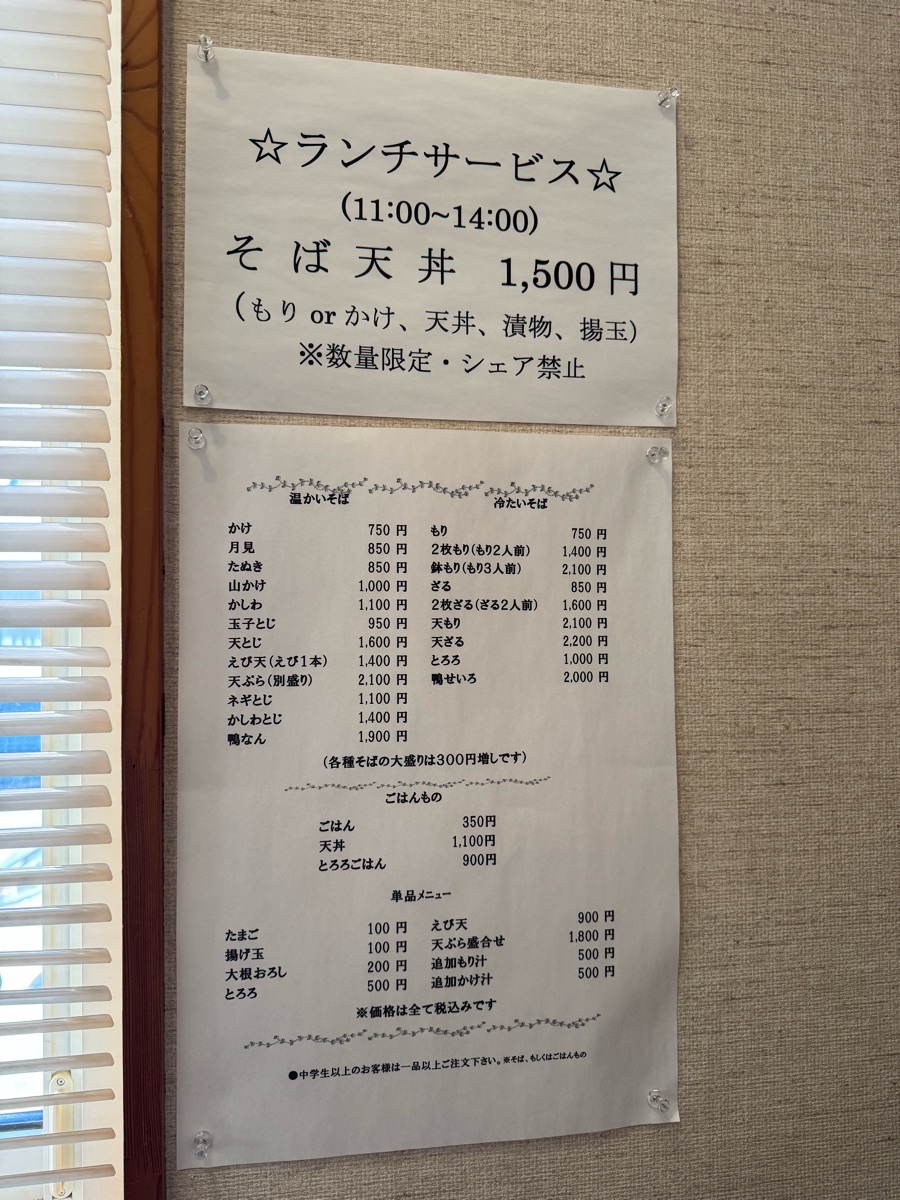 ☆ランチサービス☆
(11:00~14:00)
そば天丼 1,500 円
(もり or かけ、天丼、漬物、揚玉)
※数量限定・シェア禁止
温かいそば
かけ 750 円
月見 850 円
たぬき 850 円
山かけ 1,000 円
かしわ 1,100 円
玉子とじ 950 円
天とじ 1,600 円
えび天(えび1本) 1,400 円
天ぷら(別盛り) 2,100 円
ネギとじ 1,100 円
かしわとじ 1,400 円
鴨なん 1,900 円
冷たいそば
もり 750 円
2枚もり(もり2人前) 1,400 円
鉢もり(もり3人前) 2,100 円
ざる 850 円
2枚ざる(ざる2人前) 1,600 円
天もり 2,100 円
天ざる 2,200 円
とろろ 1,000 円
鴨せいろ 2,000 円
(各種そばの大盛りは300円増しです)
ごはんもの
ごはん 350円
天丼 1,100円
とろろごはん 900円
単品メニュー
たまご 100 円
揚げ玉 100 円
大根おろし 200 円
とろろ 500 円
えび天 900 円
天ぷら盛合せ 1,800 円
追加もり汁 500 円
追加かけ汁 500 円
※価格は全て税込みです
●中学生以上のお客様は一品以上ご注文下さい。※そば、もしくはごはんもの